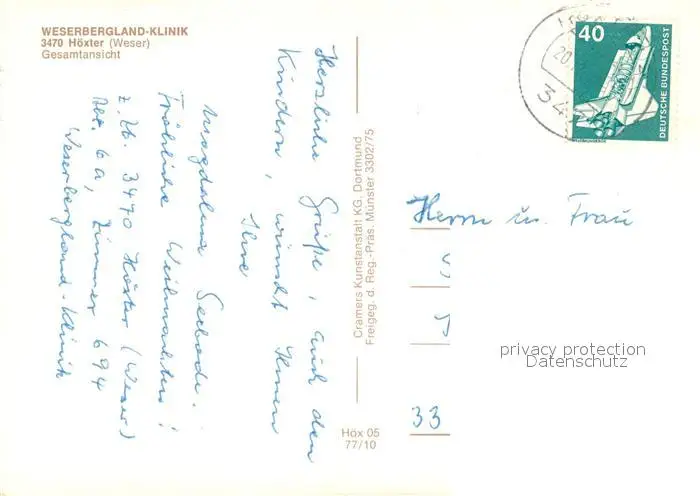 WESERBERGLAND-KLINIK
3470 Höxter (Weser)
Gesamtansicht
Herzliche Grüße, auch den
Kindern, wünscht Ihnen
Ihre
Magdalena Seebode.
Fröhliche Weihnachten!
z. Zt. 3470 Höxter (Weser)
6a, Zimmer 694
Weserbergland-Klinik
Cramers Kunstanstalt KG, Dortmund
Freigeg. d. Reg.-Präs. Münster 3302/75
Höx 05
77/10
40
DEUTSCHE BUNDESPOST
20
34
Herrn u. Frau
33
privacy protection
Datenschutz